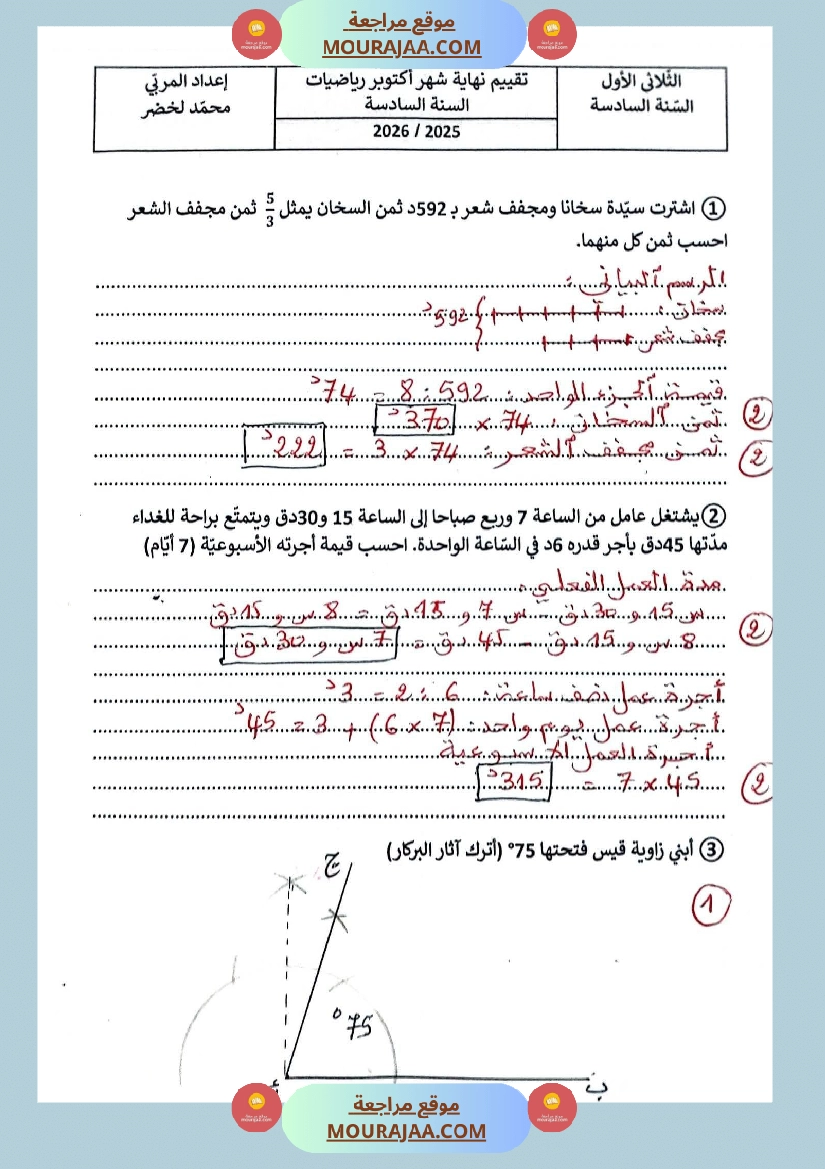 موقع مراجعة
MOURAJAA.COM
الثلاثي الأول
السنة السادسة
تقييم نهاية شهر أكتوبر رياضيات
السنة السادسة
2025 / 2026
إعداد المربّي
محمّد لخضر
① اشترت سيّدة سخانا ومجفف شعر بـ 592د ثمن السخان يمثل 5/3 ثمن مجفف الشعر
احسب ثمن كل منهما.
الرسم البياني :
سخان :
592د
مجفف شعر
قيمة الجزء الواحد : 592 : 8 = 74د
ثمن السخان : 74 × 370د
2
ثمن مجفف الشعر : 74 × 3 = 222د
2
② يشتغل عامل من الساعة 7 وربع صباحا إلى الساعة 15 و30دق ويتمتّع براحة للغداء
مدّتها 45دق بأجر قدره 6د في السّاعة الواحدة. احسب قيمة أجرته الأسبوعيّة (7 أيّام)
مدة العمل الفعلي :
س 15 و 30 دق - س 7 و 15 دق = 8 س و 15 دق
8 س و 15 دق - 45 دق = 7 س و 30 دق
2
أجرة عمل نصف ساعة : 6 : 2 = 3د
أجرة عمل يوم واحد : (7 × 6) + 3 = 45د
أجرة العمل الأسبوعية
45 × 7 = 315د
2
③ أبني زاوية قيس فتحتها 75° (أترك آثار البركار)
1
ج
75°
أ
ب
موقع مراجعة
MOURAJAA.COM